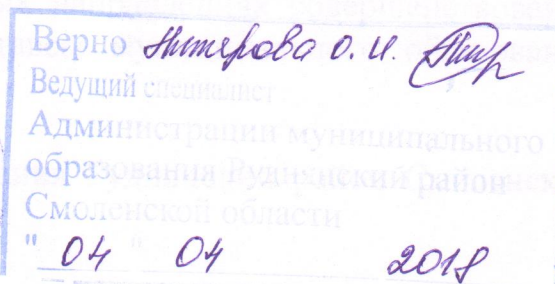 Верно О. И.
Ведущий специалист
Администрации муниципального
образования Руднянский район
Смоленской области
"04" 04 2018